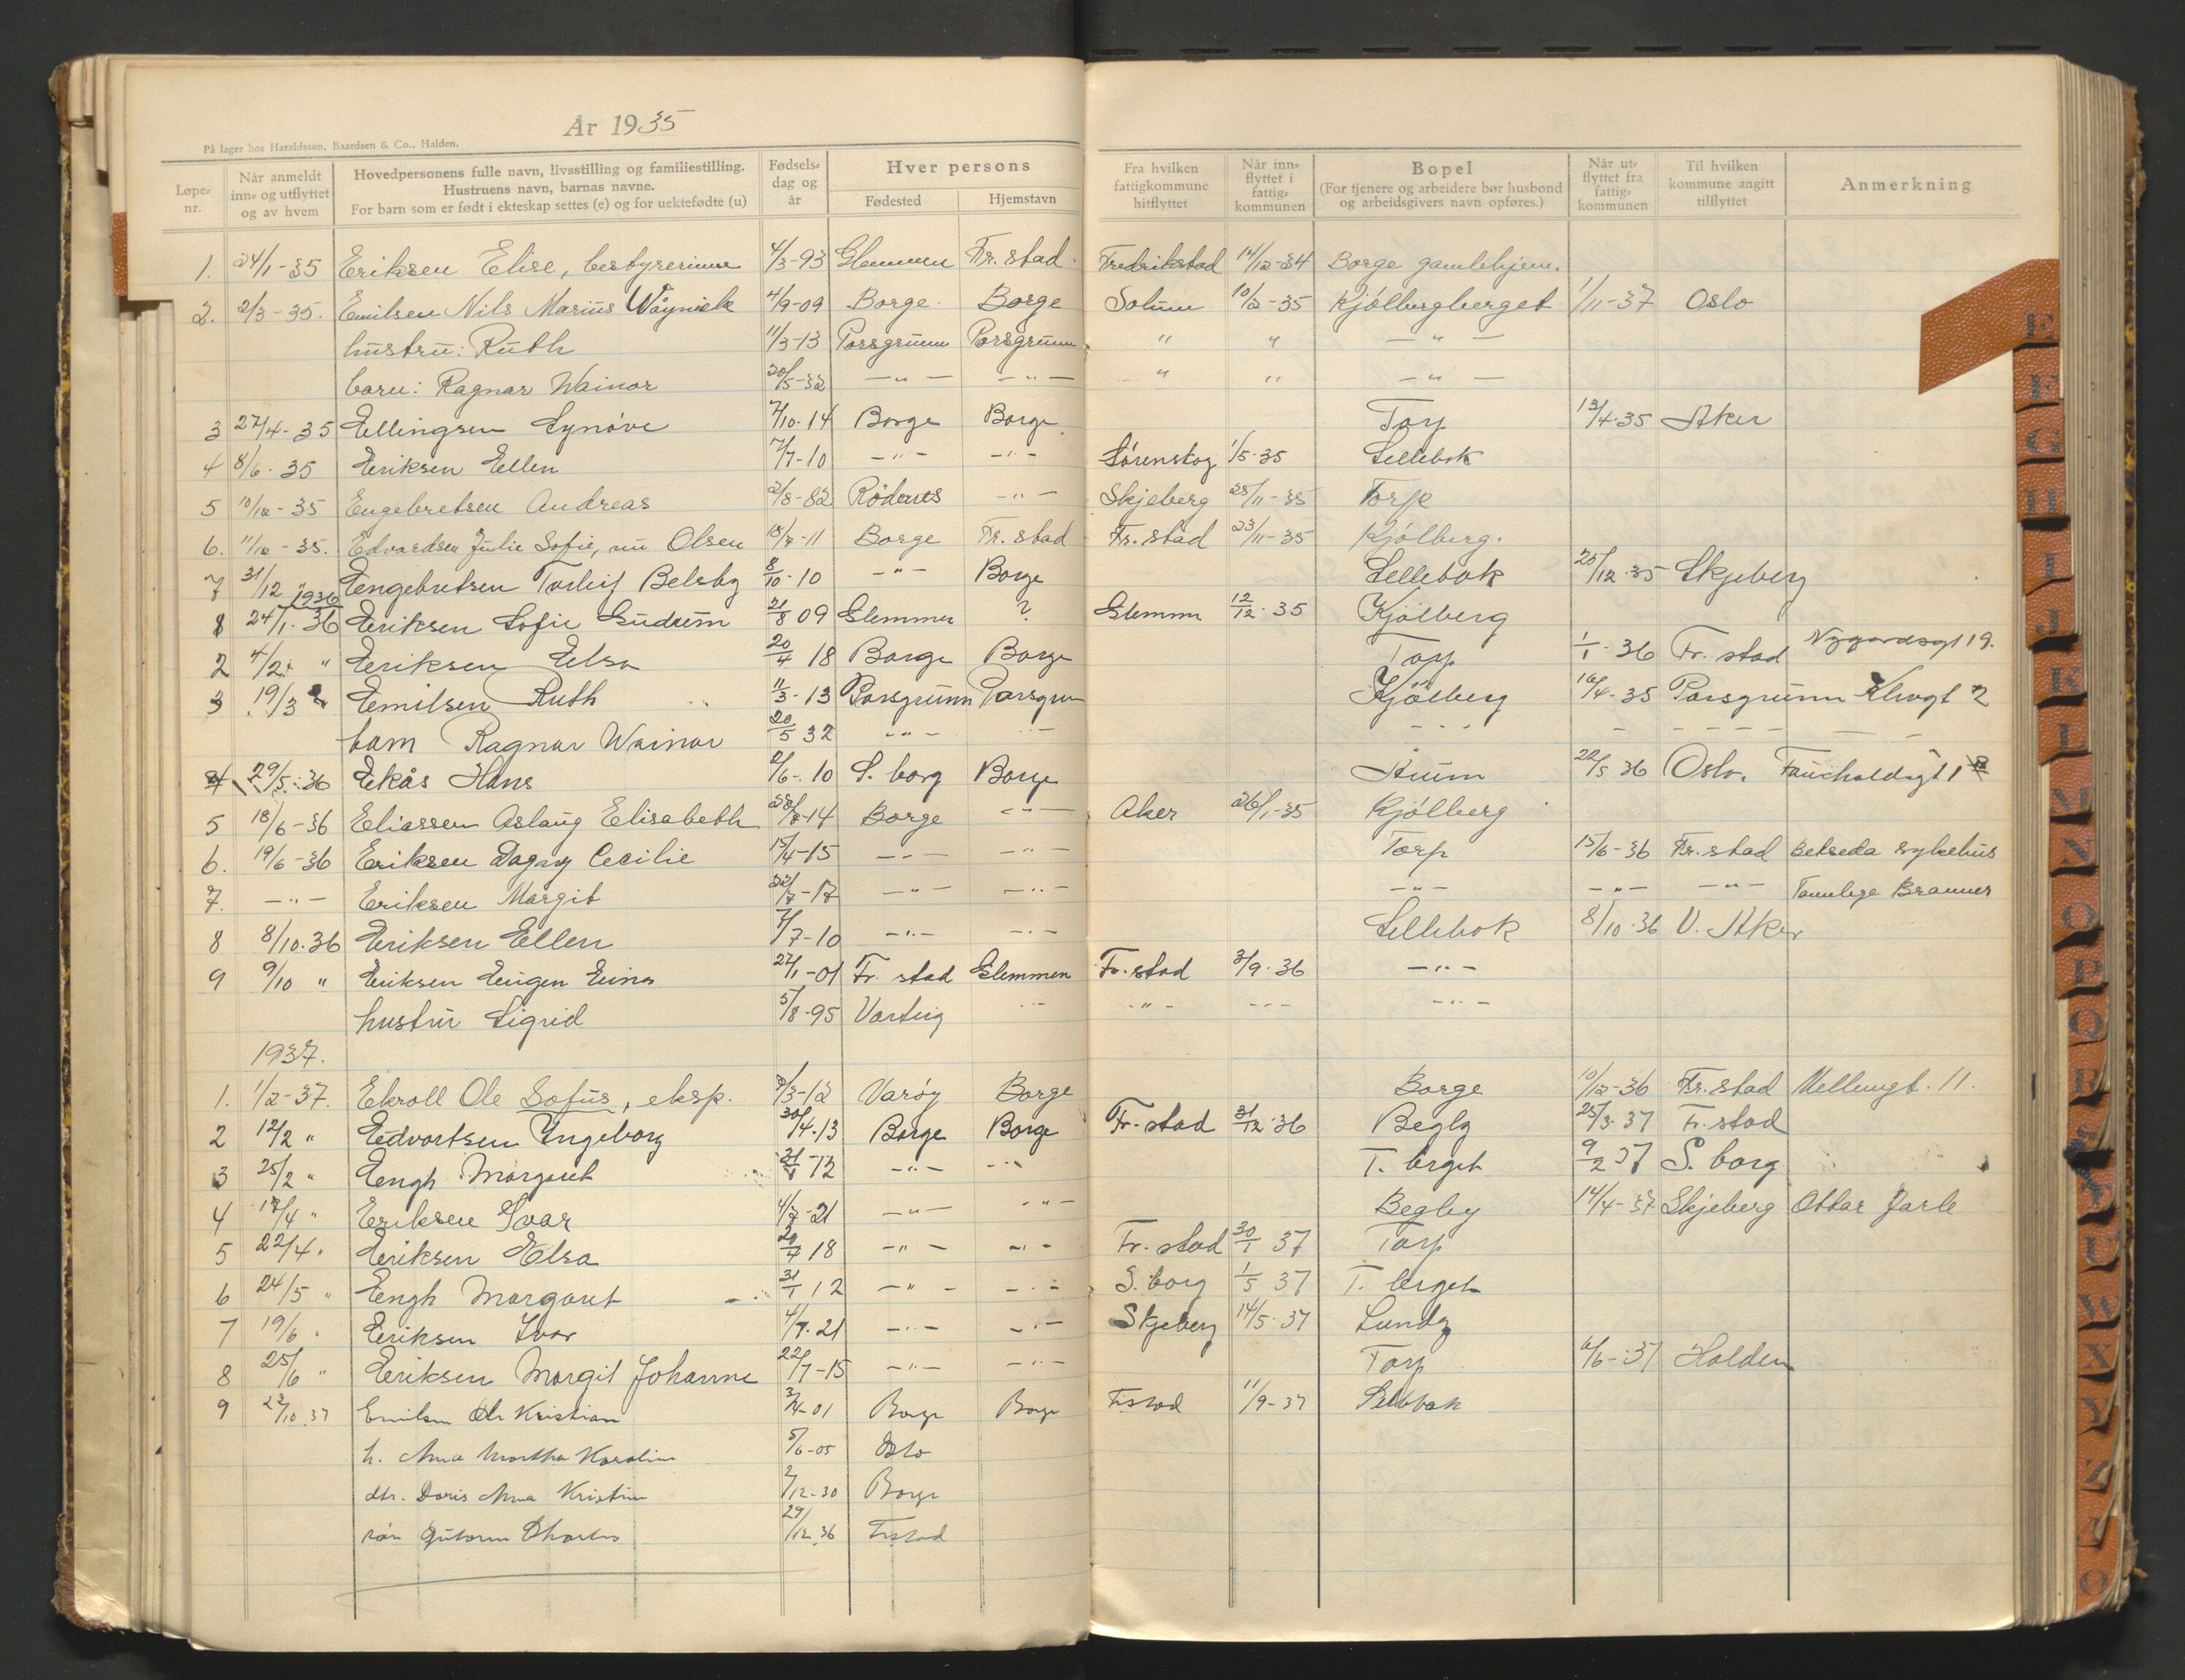 År 1935
På lager hos Haraldsson, Baardsen & Co., Halden.
Løpe-nr. Når anmeldt inn- og utflyttet og av hvem Hovedpersonens fulle navn, livsstilling og familiestilling. Hustruens navn, barnas navne. For barn som er født i ekteskap settes (e) og for uektefødte (u) Fødsels-dag og år Hver persons Fødested Hjemstavn Fra hvilken fattigkommune hitflyttet Når inn-flyttet i fattig-kommunen Bopel (For tjenere og arbeidere bør husbond og arbeidsgivers navn opføres.) Når ut-flyttet fra fattig-kommunen Til hvilken kommune angitt tilflyttet Anmerkning
1. 24/1-35 Eriksen Elise, bestyrerinne 4/3-93 Glemmen Fr.stad. Fredrikstad 14/12-34 Borge gamlehjem.
2. 2/3-35. Emilsen Nils Marius 4/9-09 Borge Borge Solum 10/2-35 Kjølbergberget 1/11-37 Oslo
hustru: Ruth 11/3-13 Porsgrunn Porsgrunn " " — " —
barn: Ragnar Wainor 20/5-32 — " — — " — " " — " —
3 27/4-35 Ellingsen Synøve 7/10-14 Borge Borge Torp 13/4-35 Aker
4 8/6-35 Eriksen Ellen 7/7-10 — " — — " — Lørenskog 1/5-35 Sellebak
5 10/12-35 Engebretsen Andreas 2/8-82 Rødenes — " — Skjeberg 25/11-35 Torp
6. 11/12-35. Edvardsen Julie Sofie, nu Olsen 18/7-11 Borge Fr.stad Fr.stad 23/11-35 Kjølberg.
7 31/12 " Engebretsen Torleif Belsby 8/10-10 — " — Borge Sellebak 20/12-35 Skjeberg
1936
1 24/1-36 Eriksen Sofie Gudrun 21/8 09 Glemmen ? Glemmn 12/12-35 Kjølberg
2 4/2 " Eriksen Elsa 20/4 18 Borge Borge Torp 1/1-36 Fr.stad Nygardsgt 19.
3 19/3 " Emilsen Ruth 11/3-13 Porsgrunn Porsgrun Kjølberg 16/4-35 Porsgrunn 2
barn Ragnar Wainor 20/5 32 — " — — " — - - - — — — —
4 29/5-36 Ekås Hans 2/6-10 S.borg Borge Årum 22/5 36 Oslo.
5 18/6-36 Eliassen Aslaug Elisabeth 28/7-14 Borge — " — Aker 26/1-35 Kjølberg
6. 19/6-36 Eriksen Dagny Cecilie 15/4-15 — " — — " — Torp 15/6-36 Fr.stad Betseda sykehus
7. — " — Eriksen Margit 22/7-17 — " — — " — — " — — " — — " — Tannlege Branner
8 8/10.36 Eriksen Ellen 7/7-10 — " — — " — Sellebak 8/10-36 V. Aker
9 9/10 " Eriksen Eugen Einar 27/1-01 Fr.stad Glemmen Fr.stad 3/9-36 — " —
hustru Sigrid 5/8-95 Varteig — " — — " — — " — — " —
1937.
1. 1/2-37. Ekroll Ole Sofus, eksp. 9/3-12 Varøy Borge Borge 10/12-36 Fr.stad Mellumgt. 11.
2 12/2 " Edvartsen Ingeborg 30/4-13 Borge Borge Fr.stad 31/12-36 Begby 25/3-37 Fr.stad
3 25/2 " Engh Margaret 31/1 12 — " — — " — T. berget 9/2 37 S.borg
4 17/4 " Eriksen Ivar 4/7-21 — " — — " — Begby 14/4-37 Skjeberg Ottar Jarle
5 22/4 " Eriksen Elsa 20/4 18 — " — — " — Fr.stad 30/1 37 Torp
6 24/5 " Engh Margaret 31/1 12 — " — — " — S.borg 1/5 37 T. berget
7 19/6 " Eriksen Ivar 4/7-21 — " — — " — Skjeberg 14/5-37 Lundby
8 25/6 " Eriksen Margit Johanne 22/7-15 — " — — " — Torp 6/6-37 Halden
9 22/10.37 Emilsen Ole Kristian 3/4-01 Borge Borge Frstad 11/9-37 Sellebak
h. Anna Martha Karoline 5/6-05 Oslo
dtr. Doris Anna Kristine 2/12-30 Borge
søn Gutorm Charles 29/12 36 Frstad